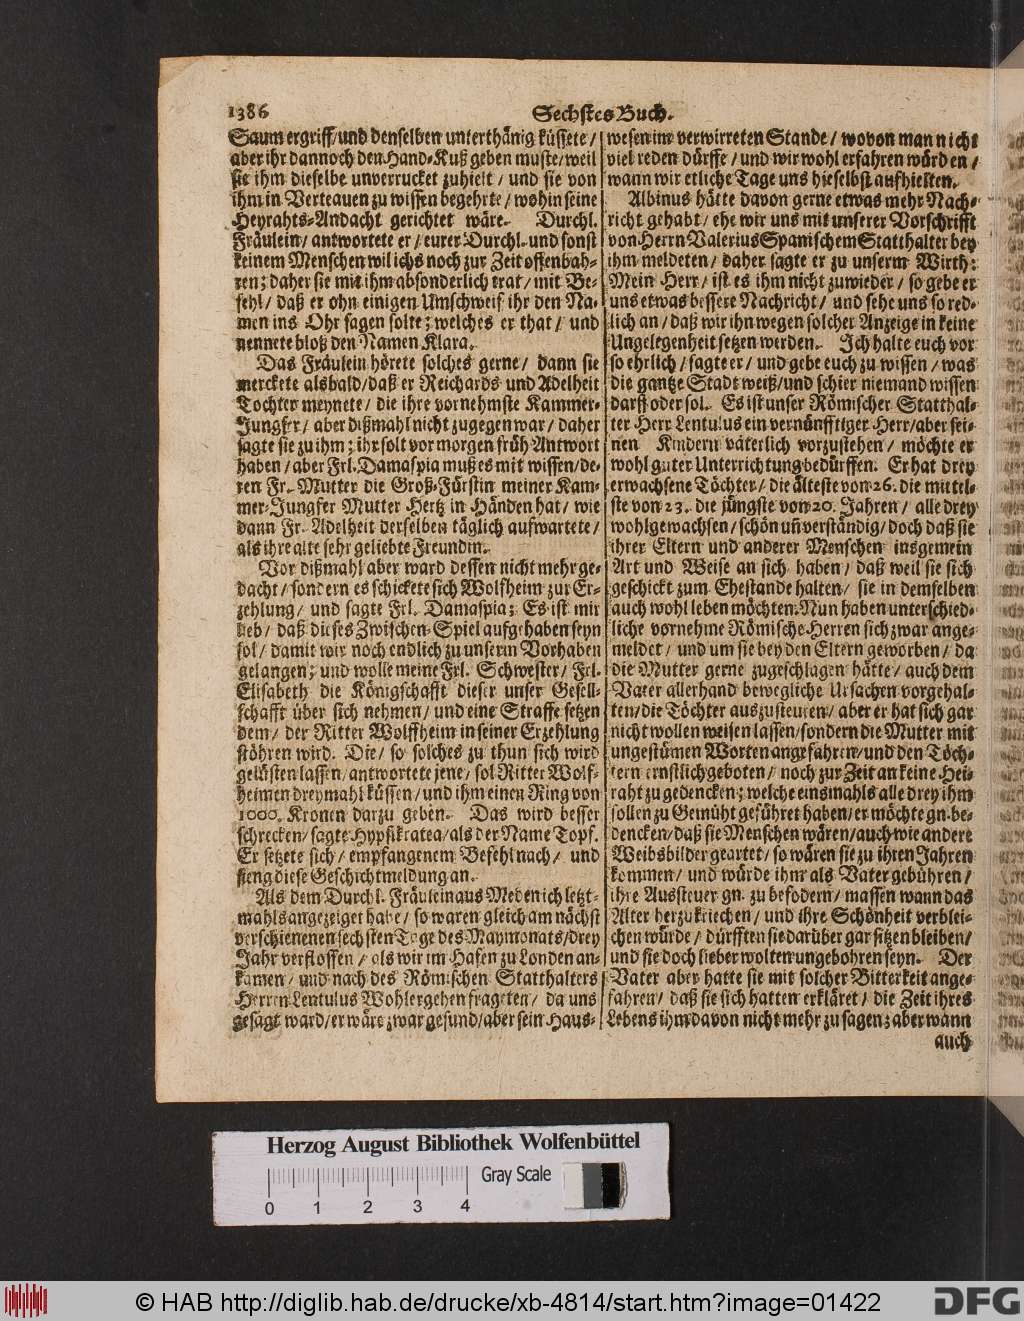 1386
Sechstes Buch.
Saum ergriff/und denselben unterthänig küssete/
aber ihr dannoch den Hand-Kuß geben muste/weil
sie ihm dieselbe unverrucket zuhielt/ und sie von
ihm in Verteauen zu wissen begehrte/ wohin seine
Heyrahts-Andacht gerichtet wäre. Durchl.
Fräulein/ antwortete er/ eurer Durchl. und sonst
keinem Menschen wil ichs noch zur Zeit offenbah-
ren; daher sie mit ihm absonderlich trat/ mit Be-
fehl/ daß er ohn einigen Umschweif ihr den Na-
men ins Ohr sagen solte; welches er that/ und
nennete bloß den Namen Klara.
Das Fräulein hörete solches gerne/ dann sie
merckete alsbald/daß er Reichards und Adelheit
Tochter meynete/ die ihre vornehmste Kammer-
Jungfer/ aber dißmahl nicht zugegen war/ daher
sagte sie zu ihm; ihr solt vor morgen früh Antwort
haben/ aber Frl. Damaspia muß es mit wissen/de-
ren Fr. Mutter die Groß-Fürstin meiner Kam-
mer-Jungfer Mutter Hertz in Händen hat/ wie
dann Fr. Adelheit derselben täglich aufwartete/
als ihre alte sehr geliebte Freundin.
Vor dißmahl aber ward dessen nicht mehr ge-
dacht/ sondern es schickete sich Wolfheim zur Er-
zehlung/ und sagte Frl. Damaspia; Es ist mir
lieb/ daß dieses Zwischen-Spiel aufgehaben seyn
sol/ damit wir noch endlich zu unserm Vorhaben
gelangen; und wolle meine Frl. Schwester/ Frl.
Elisabeth die Königschafft dieser unser Gesell-
schafft über sich nehmen/ und eine Straffe setzen
dem/ der Ritter Wolffheim in seiner Erzehlung
stöhren wird. Die/ so solches zu thun sich wird
gelüsten lassen/ antwortete jene/ sol Ritter Wolf-
heimen dreymahl küssen/ und ihm einen Ring von
1000. Kronen darzu geben. Das wird besser
schrecken/ sagte Hypsikratea/ als der Name Topf.
Er setzete sich/ empfangenem Befehl nach/ und
fieng diese Geschichtmeldung an.
Als dem Durchl. Fräulein aus Meden ich letzt-
mahls angezeiget habe/ so waren gleich am nächst
verschienenen sechsten Tage des Maymonats/drey
Jahr verflossen/ als wir im Hafen zu Londen an-
kamen/ und nach des Römischen Statthalters
Herren Lentulus Wohlergehen frageten/ da uns
gesagt ward/ er wäre zwar gesund/aber sein Haus-
wesen im verwirreten Stande/ wovon man nicht
viel reden dürffe/ und wir wohl erfahren würden/
wann wir etliche Tage uns hieselbst aufhielten.
Albinus hätte davon gerne etwas mehr Nach-
richt gehabt/ ehe wir uns mit unserer Vorschrifft
von Herrn Valerius Spanischem Statthalter bey
ihm meldeten/ daher sagte er zu unserm Wirth:
Mein Herr/ ist es ihm nicht zuwieder/ so gebe er
uns etwas bessere Nachricht/ und sehe uns so red-
lich an/ daß wir ihn wegen solcher Anzeige in keine
Ungelegenheit setzen werden. Ich halte euch vor
so ehrlich/ sagte er/ und gebe euch zu wissen/ was
die gantze Stadt weiß/und schier niemand wissen
darff oder sol. Es ist unser Römischer Statthal-
ter Herr Lentulus ein vernünfftiger Herr/aber sei-
nen Kindern väterlich vorzustehen/ möchte er
wohl guter Unterrichtung bedürffen. Er hat drey
erwachsene Töchter/ die älteste von 26. die mittel-
ste von 23. die jüngste von 20. Jahren/ alle drey
wohlgewachsen/ schön uñ verständig/ doch daß sie
ihrer Eltern und anderer Menschen insgemein
Art und Weise an sich haben/ daß weil sie sich
geschickt zum Ehestande halten/ sie in demselben
auch wohl leben möchten. Nun haben unterschied-
liche vornehme Römische Herren sich zwar ange-
meldet/ und um sie bey den Eltern geworben/ da
die Mutter gerne zugeschlagen hätte/ auch dem
Vater allerhand bewegliche Ursachen vorgehal-
ten/ die Töchter auszusteuren/ aber er hat sich gar
nicht wollen weisen lassen/ sondern die Mutter mit
ungestümen Worten angefahren/ und den Töch-
tern ernstlich geboten/ noch zur Zeit an keine Hei-
raht zu gedencken; welche einsmahls alle drey ihm
sollen zu Gemüht geführet haben/ er möchte gn. be-
dencken/ daß sie Menschen wären/ auch wie andere
Weibsbilder geartet/ so wären sie zu ihren Jahren
kommen/ und würde ihm als Vater gebühren/
ihre Aussteuer gn. zu befodern/ massen wann das
Alter herzu kriechen/ und ihre Schönheit verblei-
chen würde/ dürfften sie darüber gar sitzen bleiben/
und sie doch lieber wolten ungebohren seyn. Der
Vater aber hatte sie mit solcher Bitterkeit ange-
fahren/ daß sie sich hatten erkläret/ die Zeit ihres
Lebens ihm davon nicht mehr zu sagen; aber wann
auch
Herzog August Bibliothek Wolfenbüttel
Gray Scale
0 1 2 3 4
© HAB http://diglib.hab.de/drucke/xb-4814/start.htm?image=01422
DFG